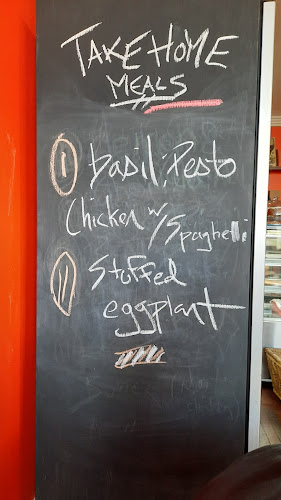 TAKE HOME
MEALS
I basil; Pesto
Chicken w/ Spaghetti
II Stoffed
eggplant